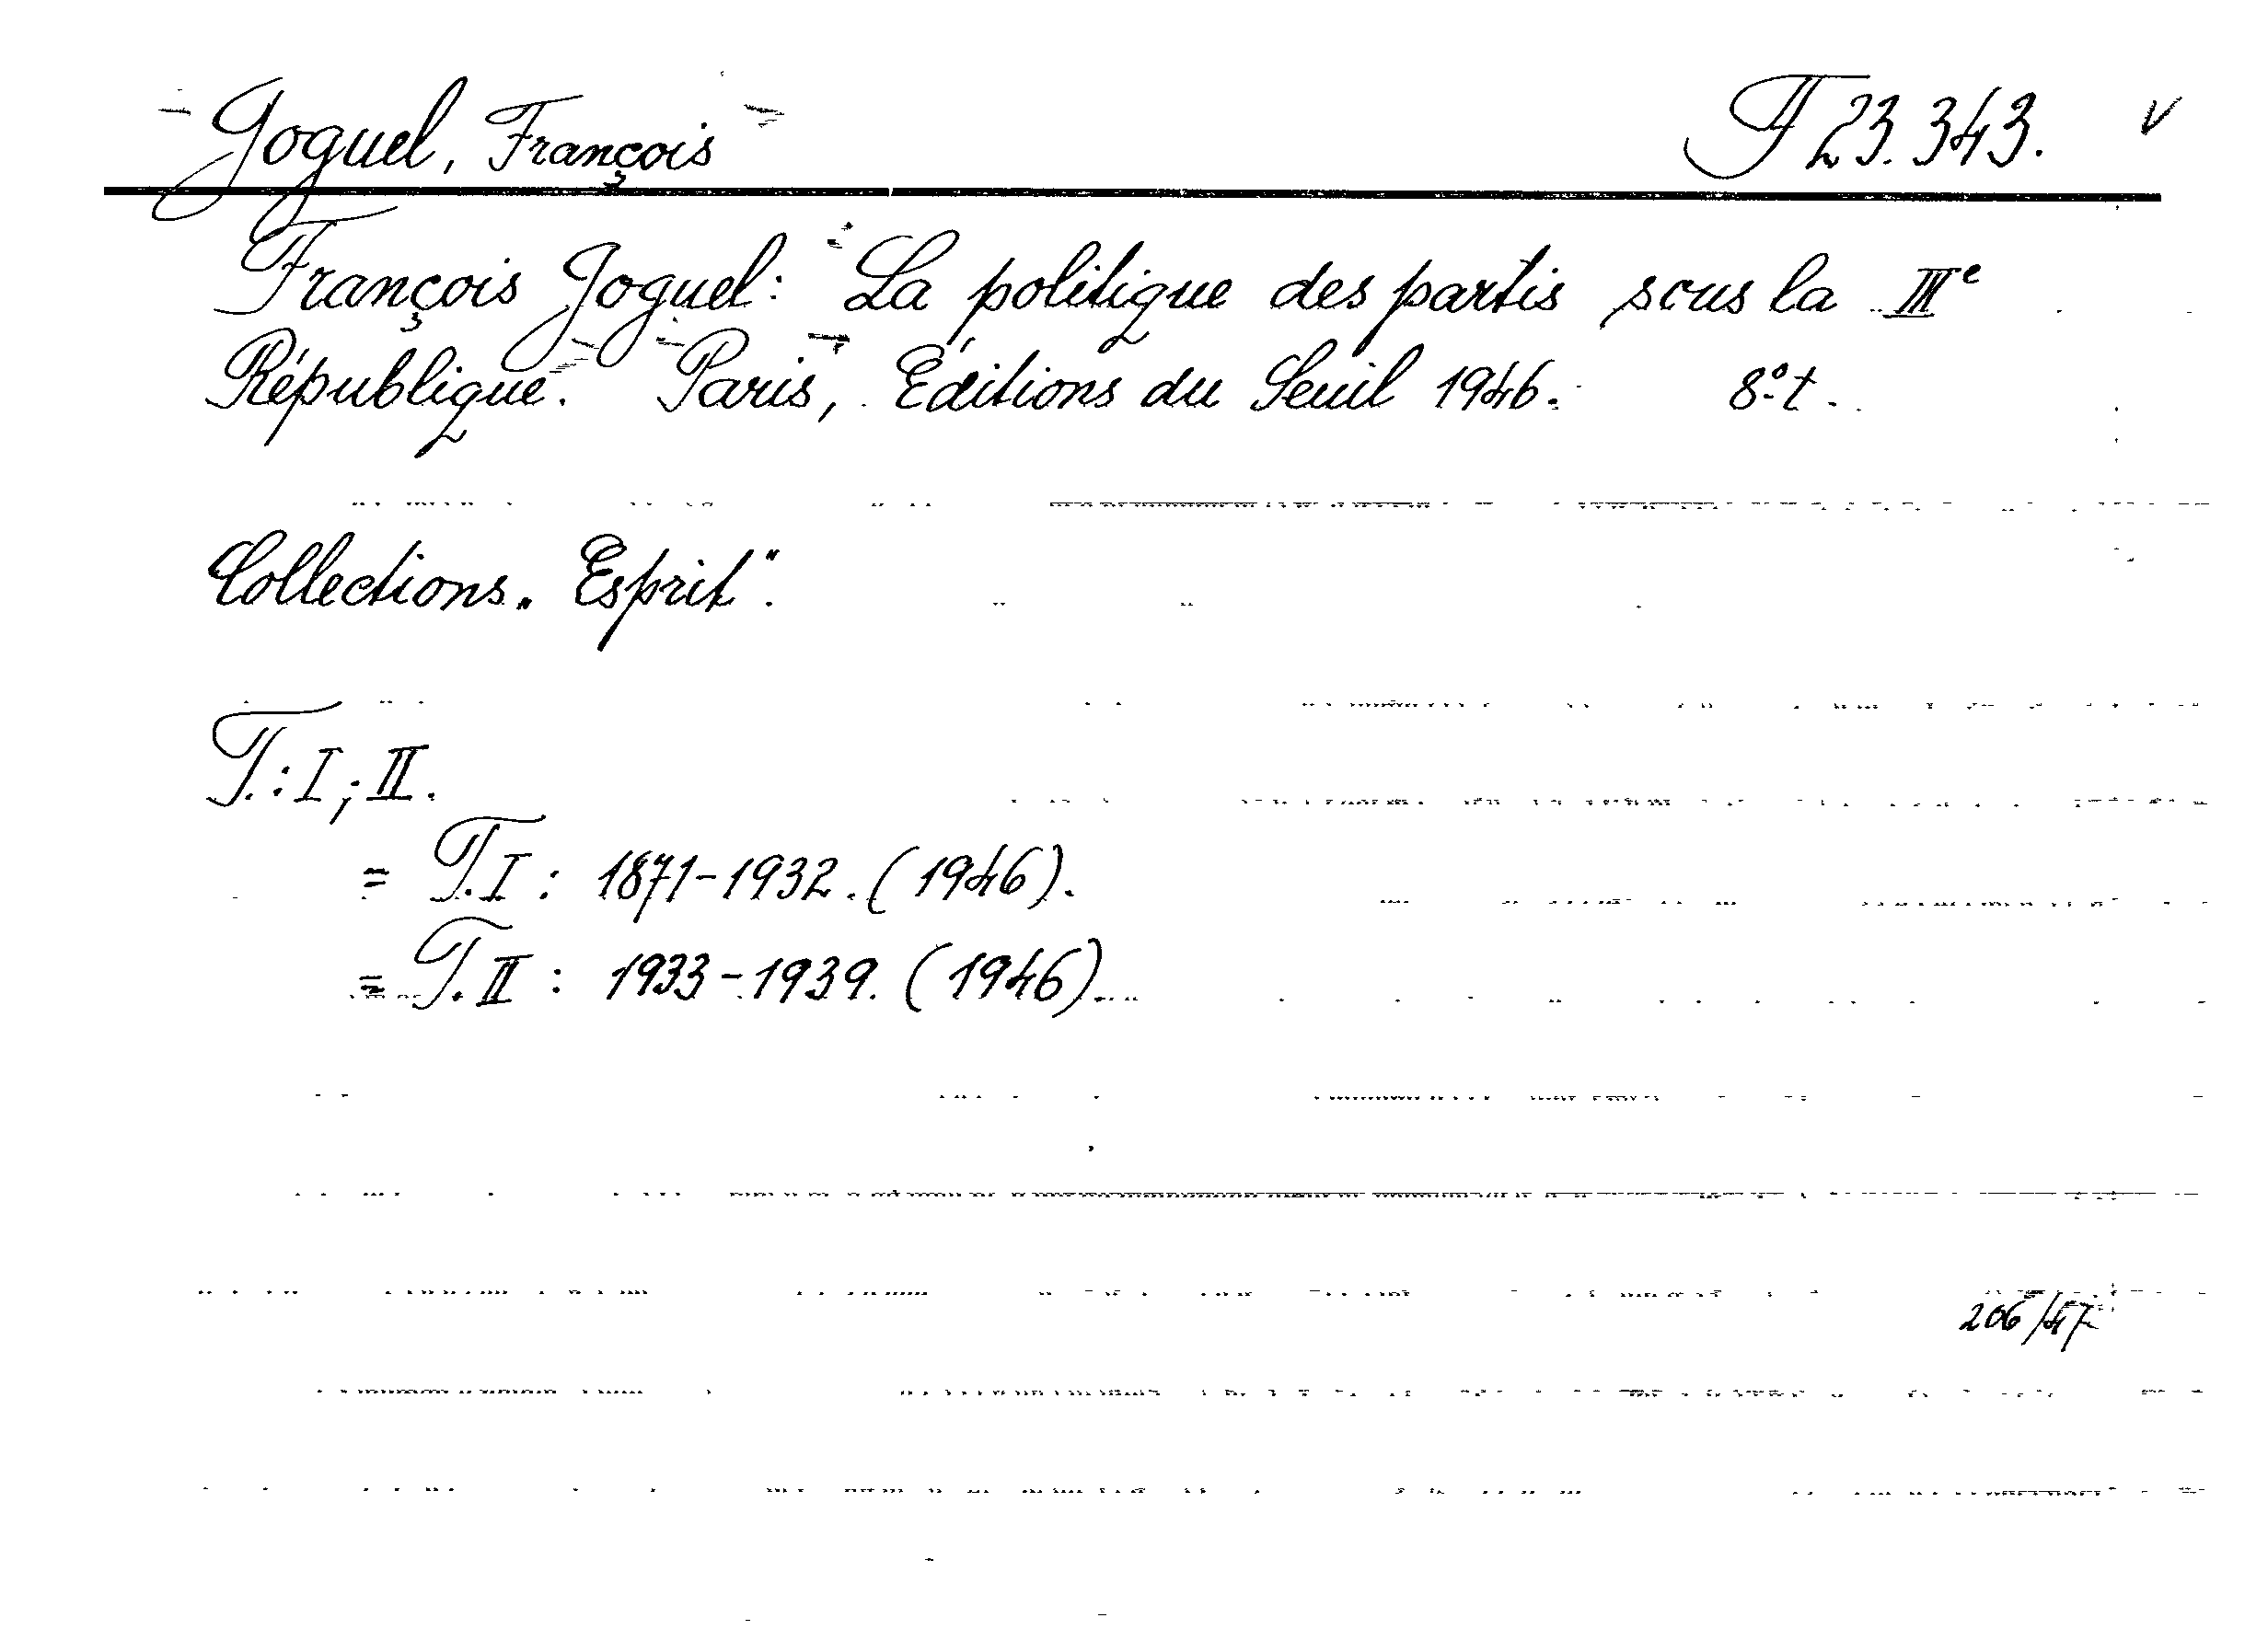 Goguel, François T 23.343. v
François Goguel: La politique des partis sous la IIIe
République. Paris, Éditions du Seuil 1946. 8o.t.
Collections „Esprit".
T.: I; II.
= T. I: 1871-1932. (1946).
= T. II: 1933-1939. (1946).
206/47